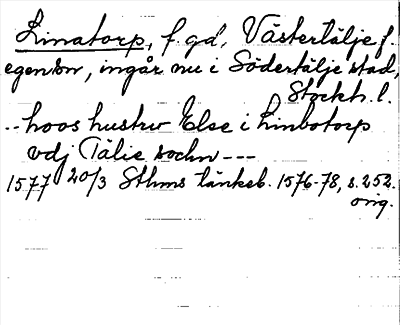 Linatorp, f. gd, Västertälje f.
egendom, ingår nu i Södertälje stad,
Stockh. l.
-- hoos hustrv Else i Linbotorp
vdj Tälie sochn ---
1577 20/3 Sthms tänkeb. 1576-78, s. 252.
orig.